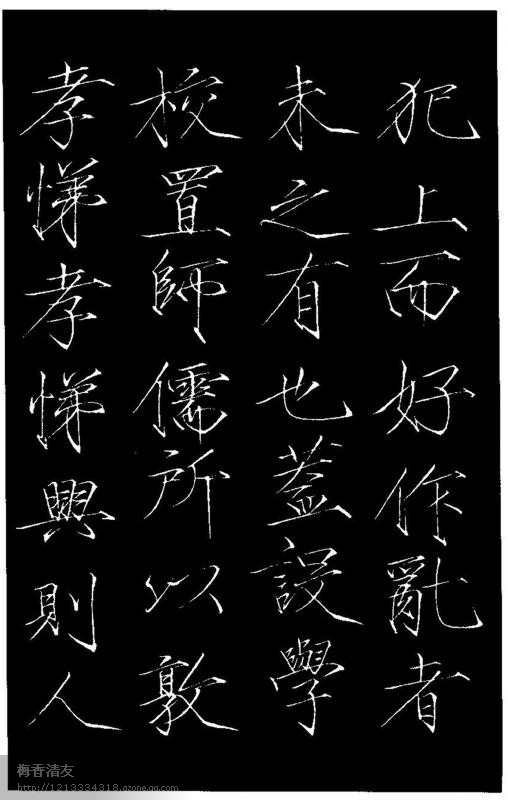 犯上而好作亂者
未之有也蓋設學
校置師儒所以敦
孝悌孝悌興則人
梅香清友
http://1213334318.qzone.qq.com